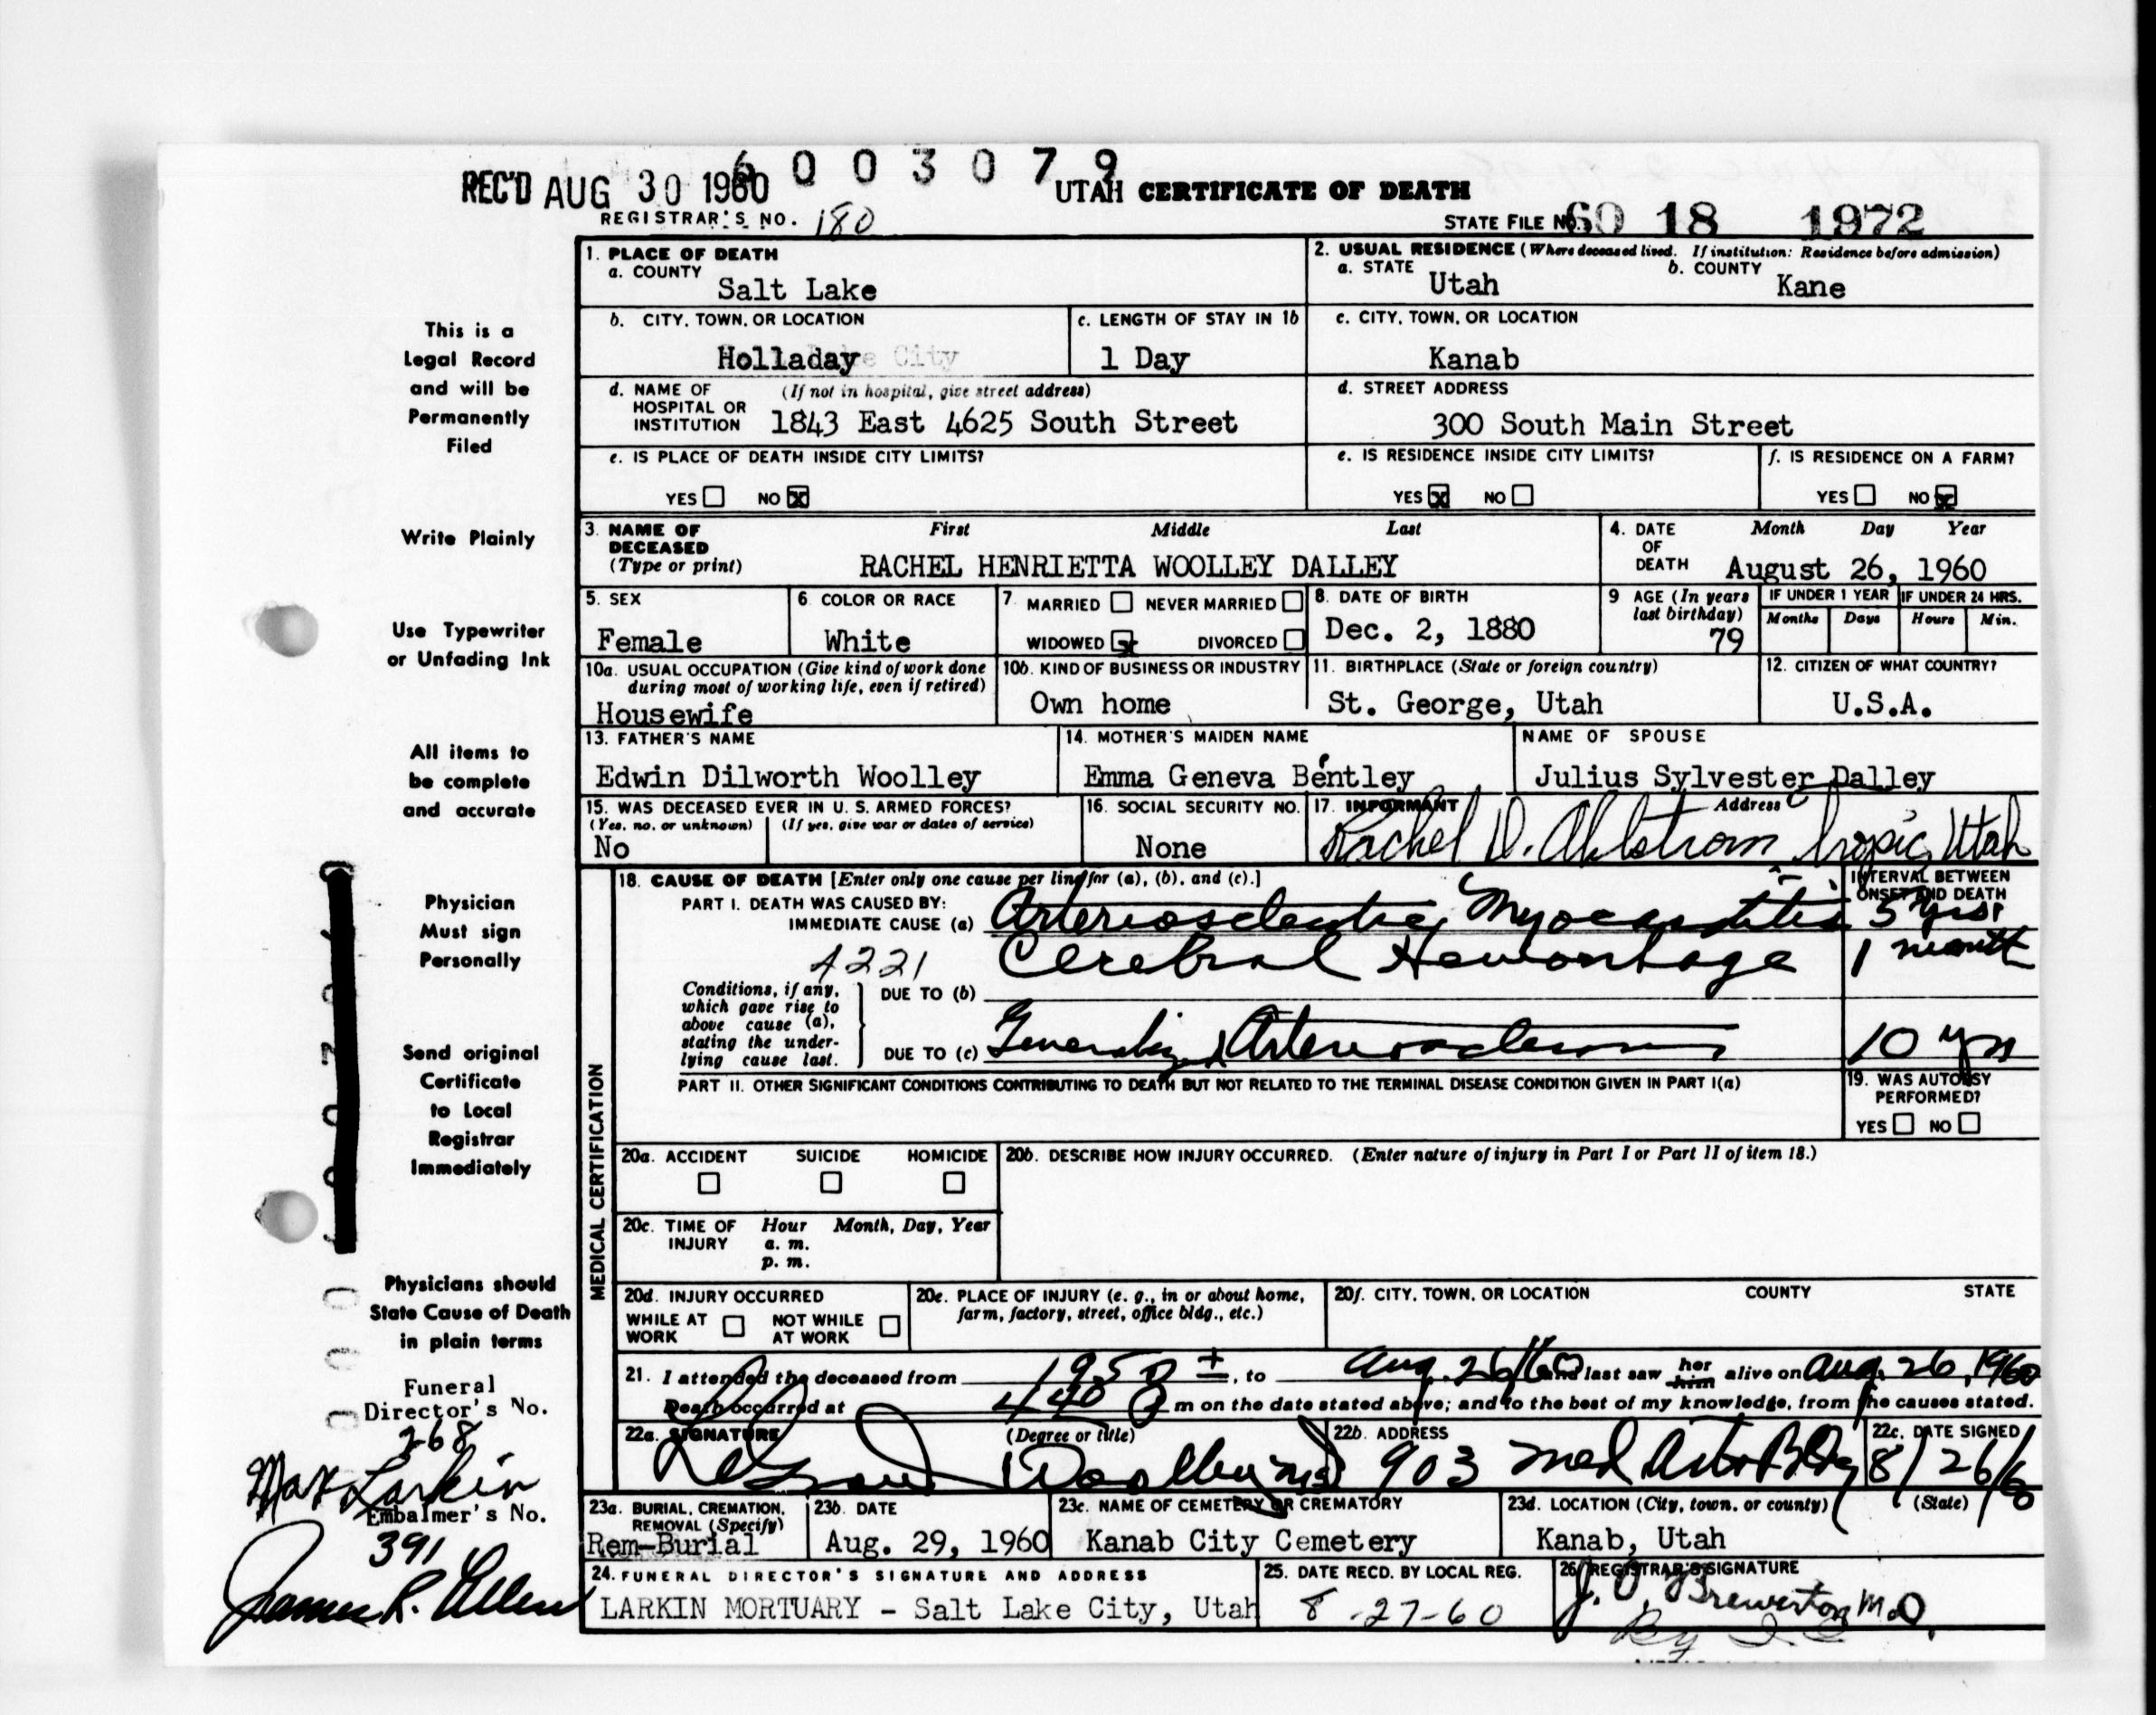 6003079
REC'D AUG 30 1960
UTAH CERTIFICATE OF DEATH
REGISTRAR'S NO. 180
STATE FILE NO. 60 18 1972
1. PLACE OF DEATH
a. COUNTY
Salt Lake
2. USUAL RESIDENCE (Where deceased lived. If institution: Residence before admission)
a. STATE
Utah
b. COUNTY
Kane
b. CITY, TOWN, OR LOCATION
Holladay
c. LENGTH OF STAY IN 1b
1 Day
c. CITY, TOWN, OR LOCATION
Kanab
d. NAME OF HOSPITAL OR INSTITUTION
(If not in hospital, give street address)
1843 East 4625 South Street
d. STREET ADDRESS
300 South Main Street
e. IS PLACE OF DEATH INSIDE CITY LIMITS?
YES NO X
e. IS RESIDENCE INSIDE CITY LIMITS?
YES X NO
f. IS RESIDENCE ON A FARM?
YES NO X
3. NAME OF DECEASED
(Type or print)
First Middle Last
RACHEL HENRIETTA WOOLLEY DALLEY
4. DATE OF DEATH
Month Day Year
August 26, 1960
5. SEX
Female
6. COLOR OR RACE
White
7. MARRIED NEVER MARRIED
WIDOWED X DIVORCED
8. DATE OF BIRTH
Dec. 2, 1880
9 AGE (In years last birthday)
79
IF UNDER 1 YEAR
Months Days
IF UNDER 24 HRS.
Hours Min.
10a. USUAL OCCUPATION (Give kind of work done during most of working life, even if retired)
Housewife
10b. KIND OF BUSINESS OR INDUSTRY
Own home
11. BIRTHPLACE (State or foreign country)
St. George, Utah
12. CITIZEN OF WHAT COUNTRY?
U.S.A.
13. FATHER'S NAME
Edwin Dilworth Woolley
14. MOTHER'S MAIDEN NAME
Emma Geneva Bentley
NAME OF SPOUSE
Julius Sylvester Dalley
15. WAS DECEASED EVER IN U. S. ARMED FORCES?
(Yes, no, or unknown) (If yes, give war or dates of service)
No
16. SOCIAL SECURITY NO.
None
17. INFORMANT Address
Rachel D. Ahlstrom Tropic, Utah
MEDICAL CERTIFICATION
18. CAUSE OF DEATH [Enter only one cause per line for (a), (b), and (c).]
INTERVAL BETWEEN ONSET AND DEATH
PART I. DEATH WAS CAUSED BY:
IMMEDIATE CAUSE (a) Arteriosclerotic Myocarditis 5 yrs.
4221 Cerebral Hemorrhage 1 month
Conditions, if any, which gave rise to above cause (a), stating the underlying cause last.
DUE TO (b)
DUE TO (c) Generalized Arteriosclerosis 10 yrs
PART II. OTHER SIGNIFICANT CONDITIONS CONTRIBUTING TO DEATH BUT NOT RELATED TO THE TERMINAL DISEASE CONDITION GIVEN IN PART I(a)
19. WAS AUTOPSY PERFORMED?
YES NO
20a. ACCIDENT SUICIDE HOMICIDE
20b. DESCRIBE HOW INJURY OCCURRED. (Enter nature of injury in Part I or Part II of item 18.)
20c. TIME OF INJURY
Hour Month, Day, Year
a. m.
p. m.
20d. INJURY OCCURRED
WHILE AT WORK NOT WHILE AT WORK
20e. PLACE OF INJURY (e. g., in or about home, farm, factory, street, office bldg., etc.)
20f. CITY, TOWN, OR LOCATION COUNTY STATE
21. I attended the deceased from 1950 ±, to Aug. 26/60 and last saw her him alive on Aug. 26, 1960
Death occurred at 4 40 P m on the date stated above; and to the best of my knowledge, from the causes stated.
22a. SIGNATURE (Degree or title)
Woolley MD
22b. ADDRESS
903 Med Arts Bldg
22c. DATE SIGNED
8/26/60
23a. BURIAL, CREMATION, REMOVAL (Specify)
Rem-Burial
23b. DATE
Aug. 29, 1960
23c. NAME OF CEMETERY OR CREMATORY
Kanab City Cemetery
23d. LOCATION (City, town, or county) (State)
Kanab, Utah
24. FUNERAL DIRECTOR'S SIGNATURE AND ADDRESS
LARKIN MORTUARY - Salt Lake City, Utah
25. DATE RECD. BY LOCAL REG.
8-27-60
26. REGISTRAR'S SIGNATURE
J. O. Brewerton M.D.
By
This is a
Legal Record
and will be
Permanently
Filed
Write Plainly
Use Typewriter
or Unfading Ink
All items to
be complete
and accurate
Physician
Must sign
Personally
Send original
Certificate
to Local
Registrar
Immediately
Physicians should
State Cause of Death
in plain terms
Funeral
Director's No.
268
Max Larkin
Embalmer's No.
391
James R. Allen